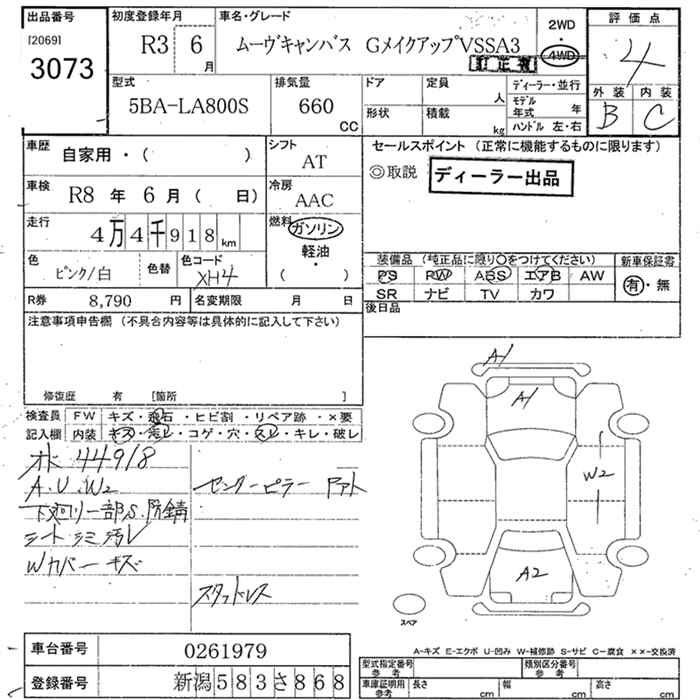 出品番号 初度登録年月 車名・グレード 2WD・4WD 評価点
[2069] R3 6月 ムーヴキャンバス GメイクアップVSSA3 4
3073 訂正有
型式 排気量 ドア 定員 人 ディーラー・並行 外装 内装
5BA-LA800S 660 CC 形状 積載 kg モデル年式 年 B C
ハンドル 左・右
車歴 自家用・( ) シフト AT セールスポイント(正常に機能するものに限ります)
◎取説 ディーラー出品
車検 R8年 6月( 日) 冷房 AAC
走行 4万4千918km 燃料 ガソリン・軽油・( )
色 ピンク/白 色替 色コード XH4 装備品(純正品に限り○をつけてください) 新車保証書
PS PW ABS エアB AW 有・無
SR ナビ TV カワ
R券 8,790円 名変期限 月 日 後日品
注意事項申告欄(不具合内容等は具体的に記入して下さい)
修復歴 有 [箇所 ]
検査員 FW キズ・飛石・ヒビ割・リペア跡・×要
記入欄 内装 キズ・汚レ・コゲ・穴・スレ・キレ・破レ
オド 44918
A.U.W2 センターピラー
下廻リ一部S.所錆
シート シミ 汚レ
Wカバーキズ
スタッドレス
A1
A1
W2
A2
スペア
A-キズ E-エクボ U-凹み W-補修跡 S-サビ C-腐食 ××-交換済
車台番号 0261979
登録番号 新潟583さ868
型式指定番号 参考 類別区分番号 参考
車庫証明用 参考 長さ cm 幅 cm 高さ cm